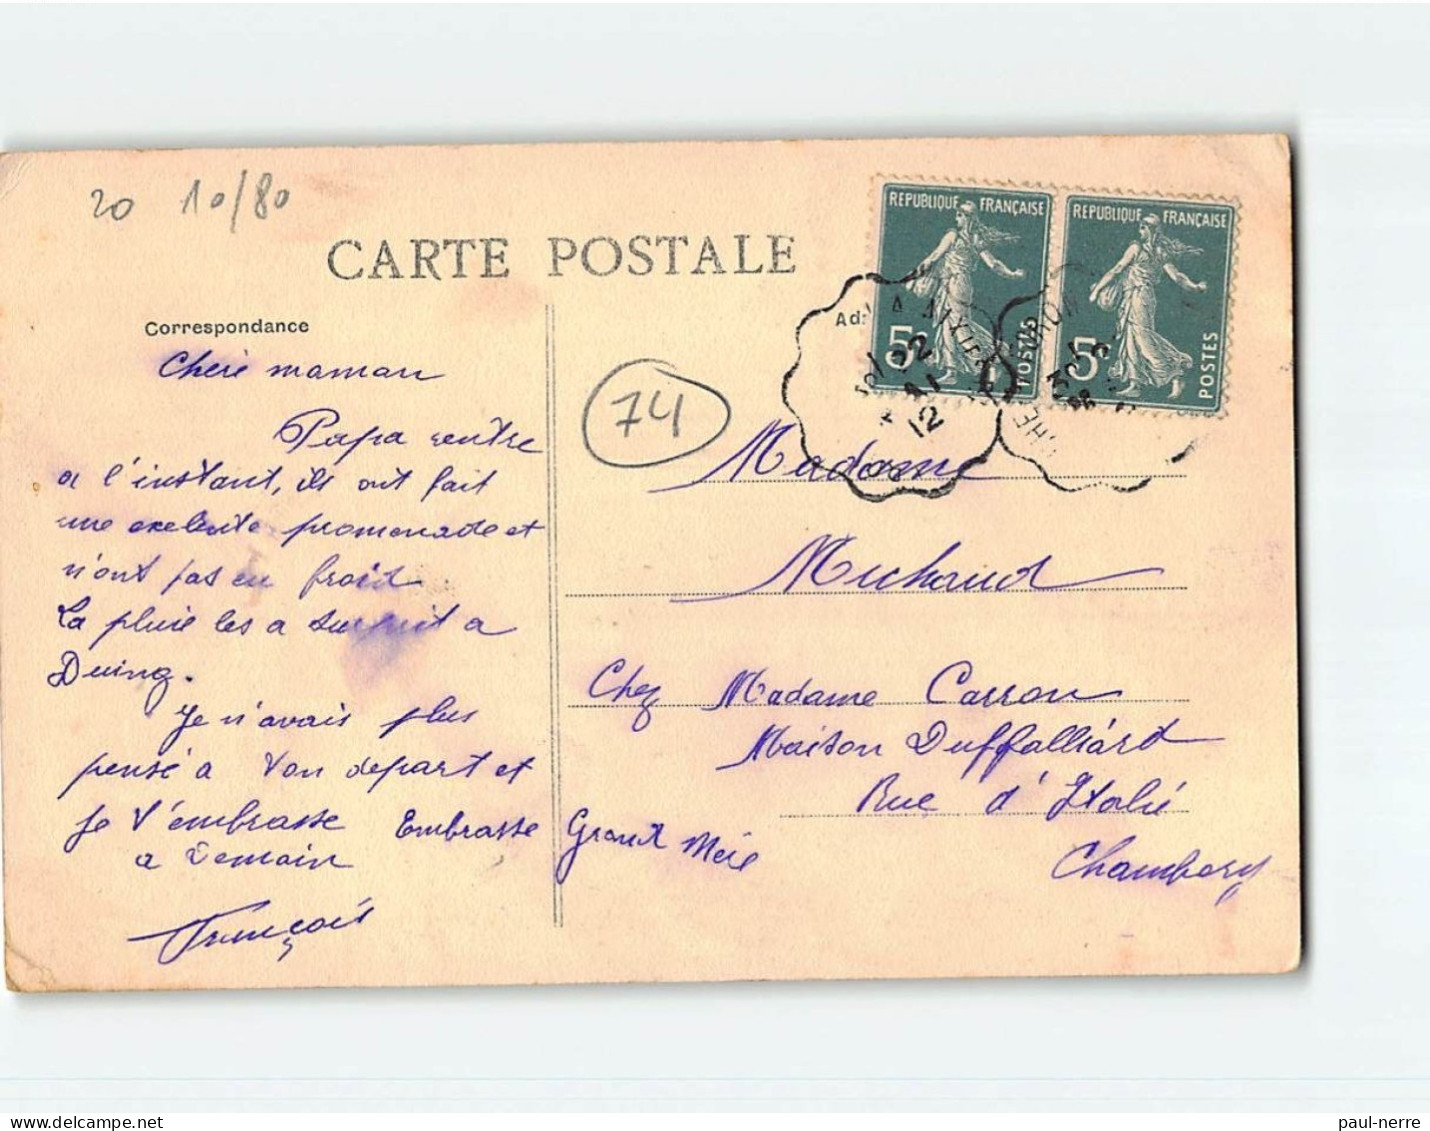 20 10/80
CARTE POSTALE
REPUBLIQUE FRANÇAISE
5c
POSTES
REPUBLIQUE FRANÇAISE
5c
POSTES
Correspondance
74
Cheré maman
Papa rentre
a l'instant, ils ont fait
une exelente promenade et
n'ont pas eu froid
La pluie les a surprit a
Duing.
Je n'avais plus
pensé a ton depart et
je t'embrasse Embrasse Grand Mère
a demain
François
Madame
Michaud
Chez Madame Carron
Maison Duffalliárd
Rue d'Italie
Chambery
paul-nerre